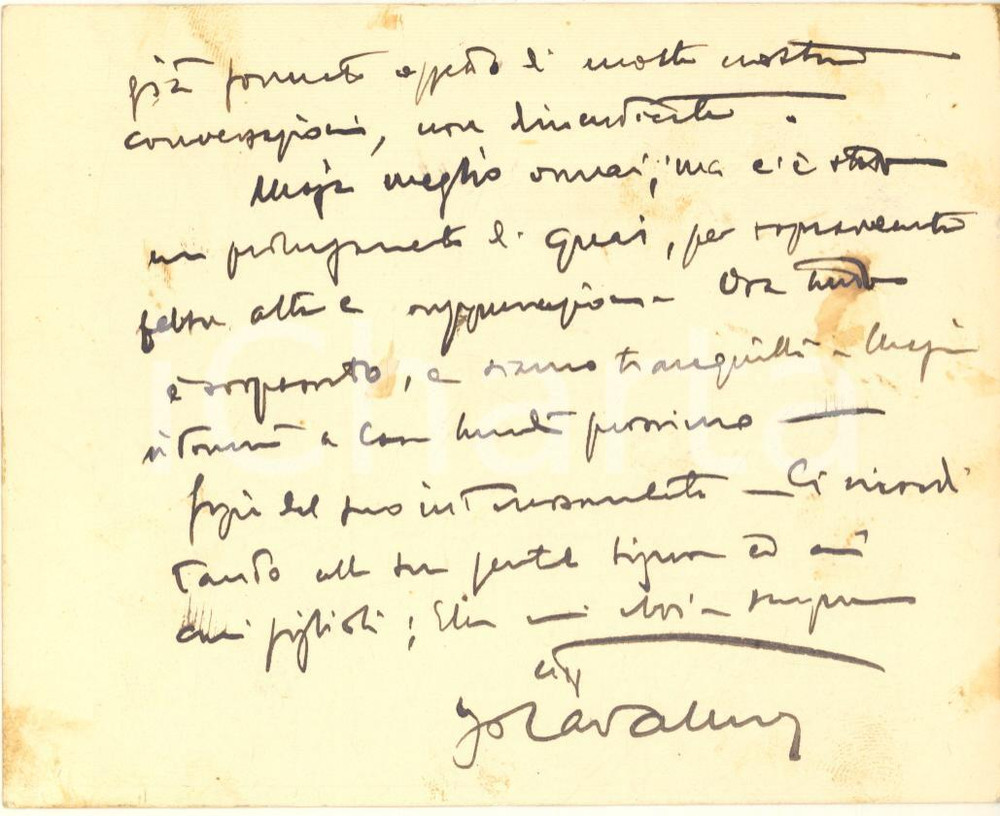 già formato oggetto di molte nostre
conversazioni, non dimenticate.
meglio ormai, ma c'è stato
un prolungamento di guai, per sopravvenuta
febbre alta e suppurazione. Ora tutto
è scomparso, e siamo tranquilli.
ritornerà a casa lunedì prossimo —
Grazie del suo interessamento — Ci ricordi
tanto alla sua gentile Signora ed ai
cari figlioli; Ella mi abbia sempre
iCharta